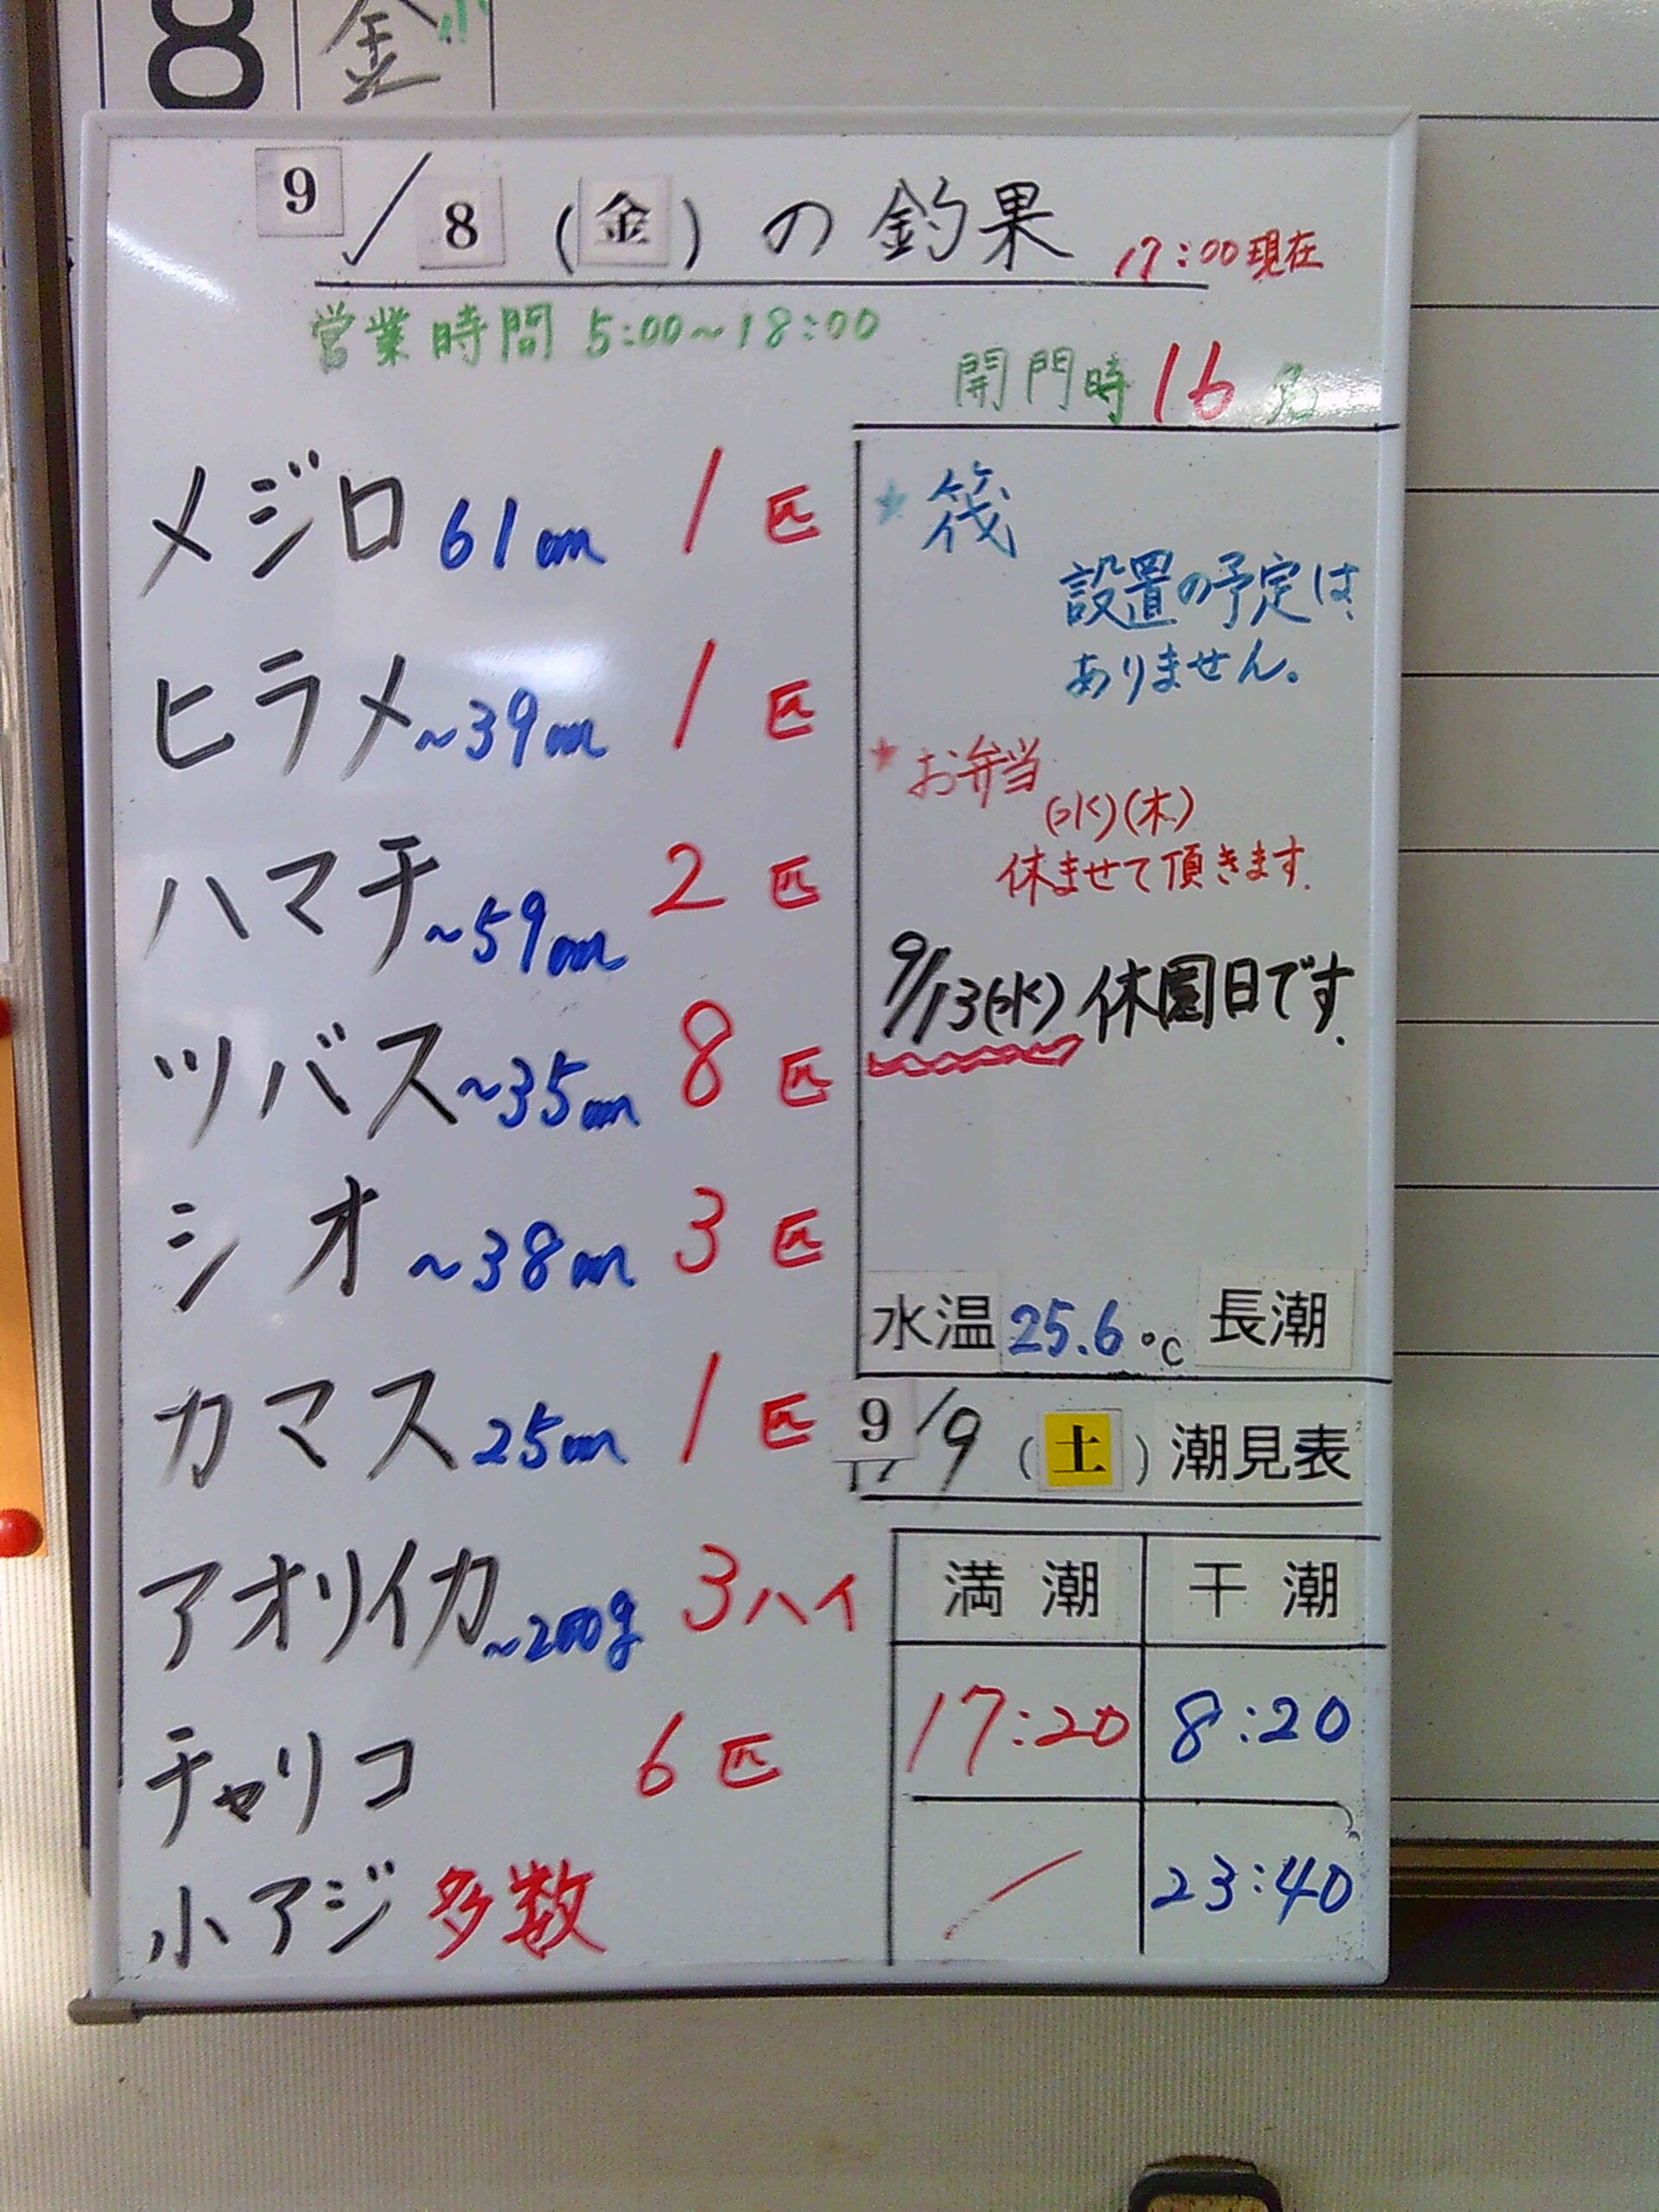 8 金
9/8(金)の釣果 17:00現在
営業時間 5:00~18:00
開門時 16名
メジロ 61cm 1匹
ヒラメ ~39cm 1匹
ハマチ ~59cm 2匹
ツバス ~35cm 8匹
シオ ~38cm 3匹
カマス 25cm 1匹
アオリイカ ~200g 3ハイ
チャリコ 6匹
小アジ 多数
*筏
設置の予定は
ありません。
*お弁当
(水)(木)
休ませて頂きます.
9/13(水)休園日です.
水温 25.6℃ 長潮
9/9(土)潮見表
満潮 干潮
17:20 8:20
/ 23:40